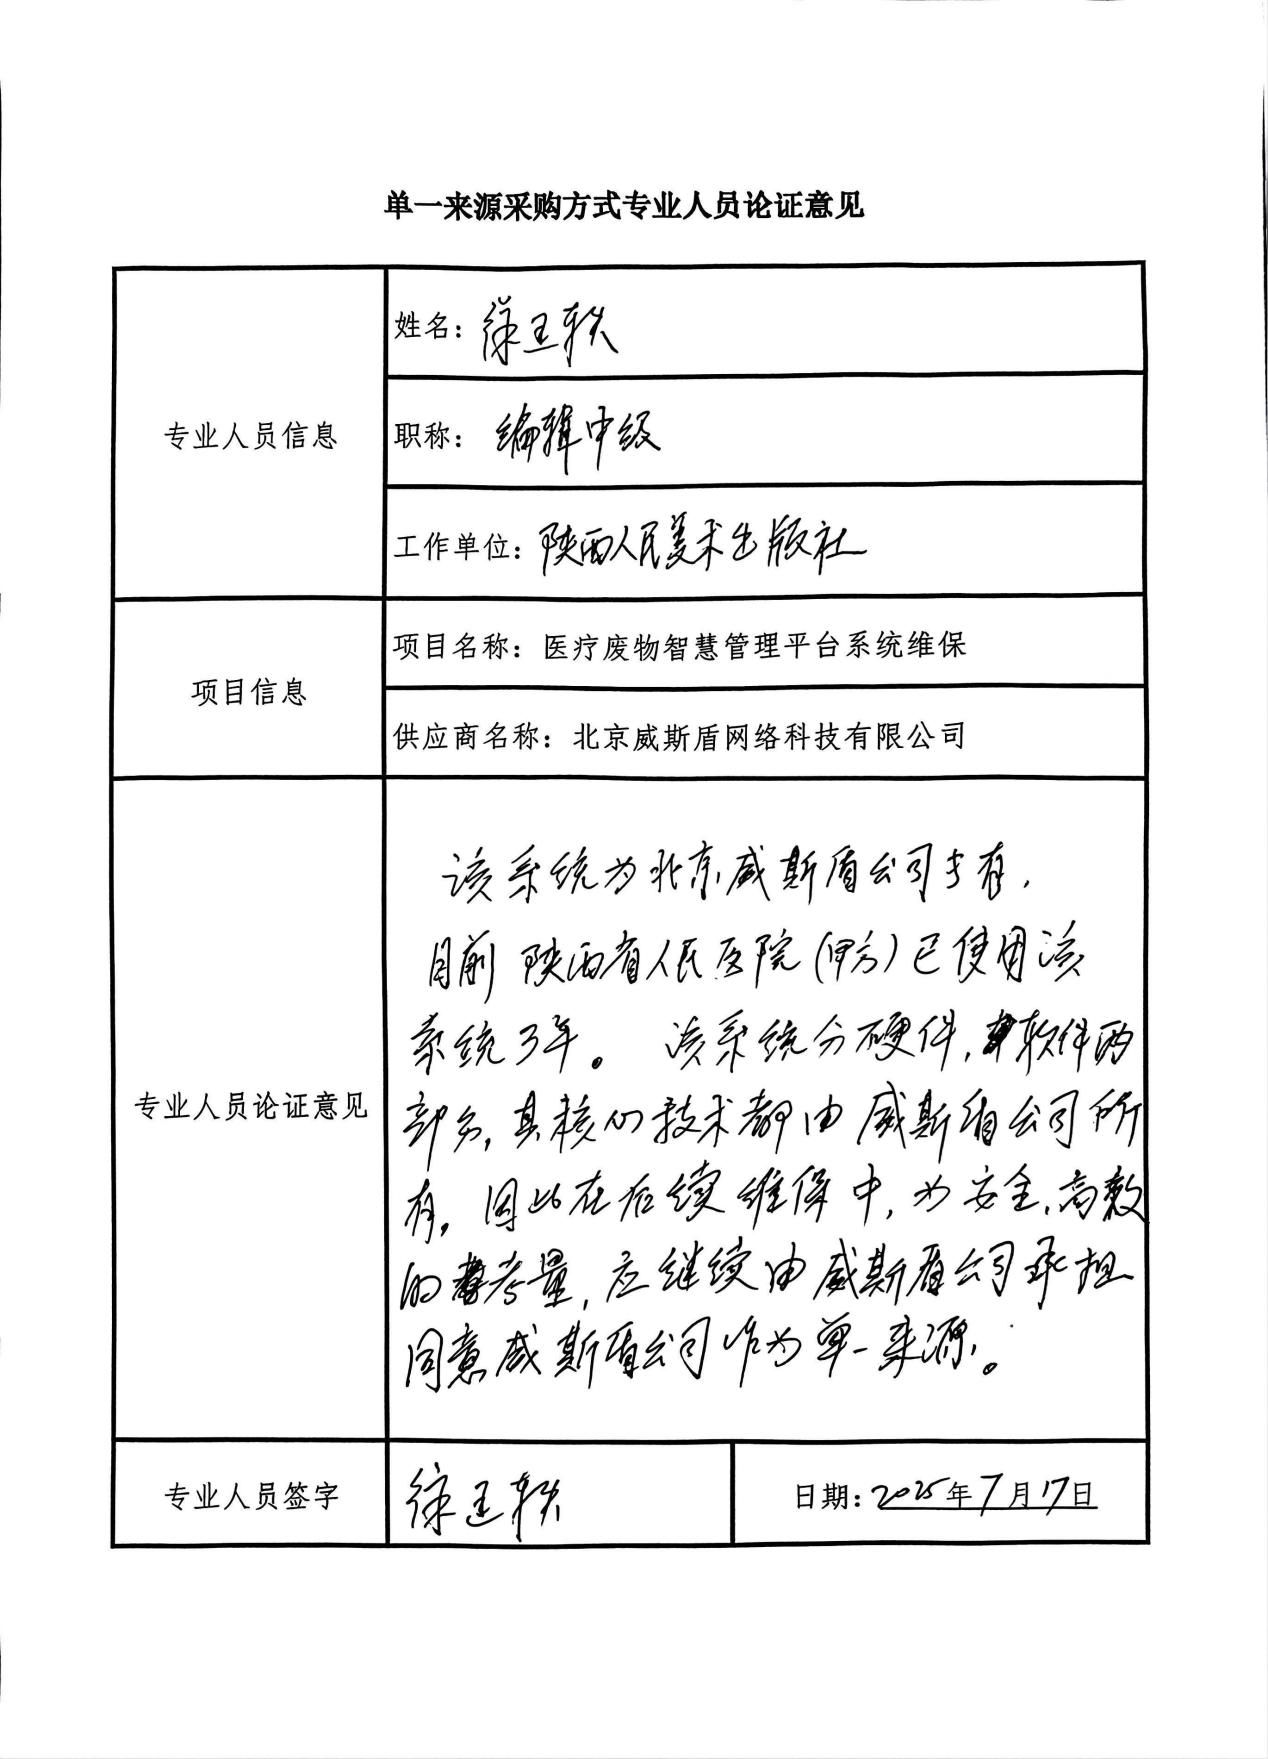 单一来源采购方式专业人员论证意见
专业人员信息
姓名：徐王轶
职称：编辑中级
工作单位：陕西人民美术出版社
项目信息
项目名称：医疗废物智慧管理平台系统维保
供应商名称：北京威斯盾网络科技有限公司
专业人员论证意见
该系统为北京威斯盾公司专有，
目前陕西省人民医院（甲方）已使用该
系统3年。该系统分硬件，软件两
部分，其核心技术都由威斯盾公司所
有，因此在后续维保中，为安全、高效
的考量，应继续由威斯盾公司承担
同意威斯盾公司作为单一来源。
专业人员签字
徐王轶
日期：2025年7月17日